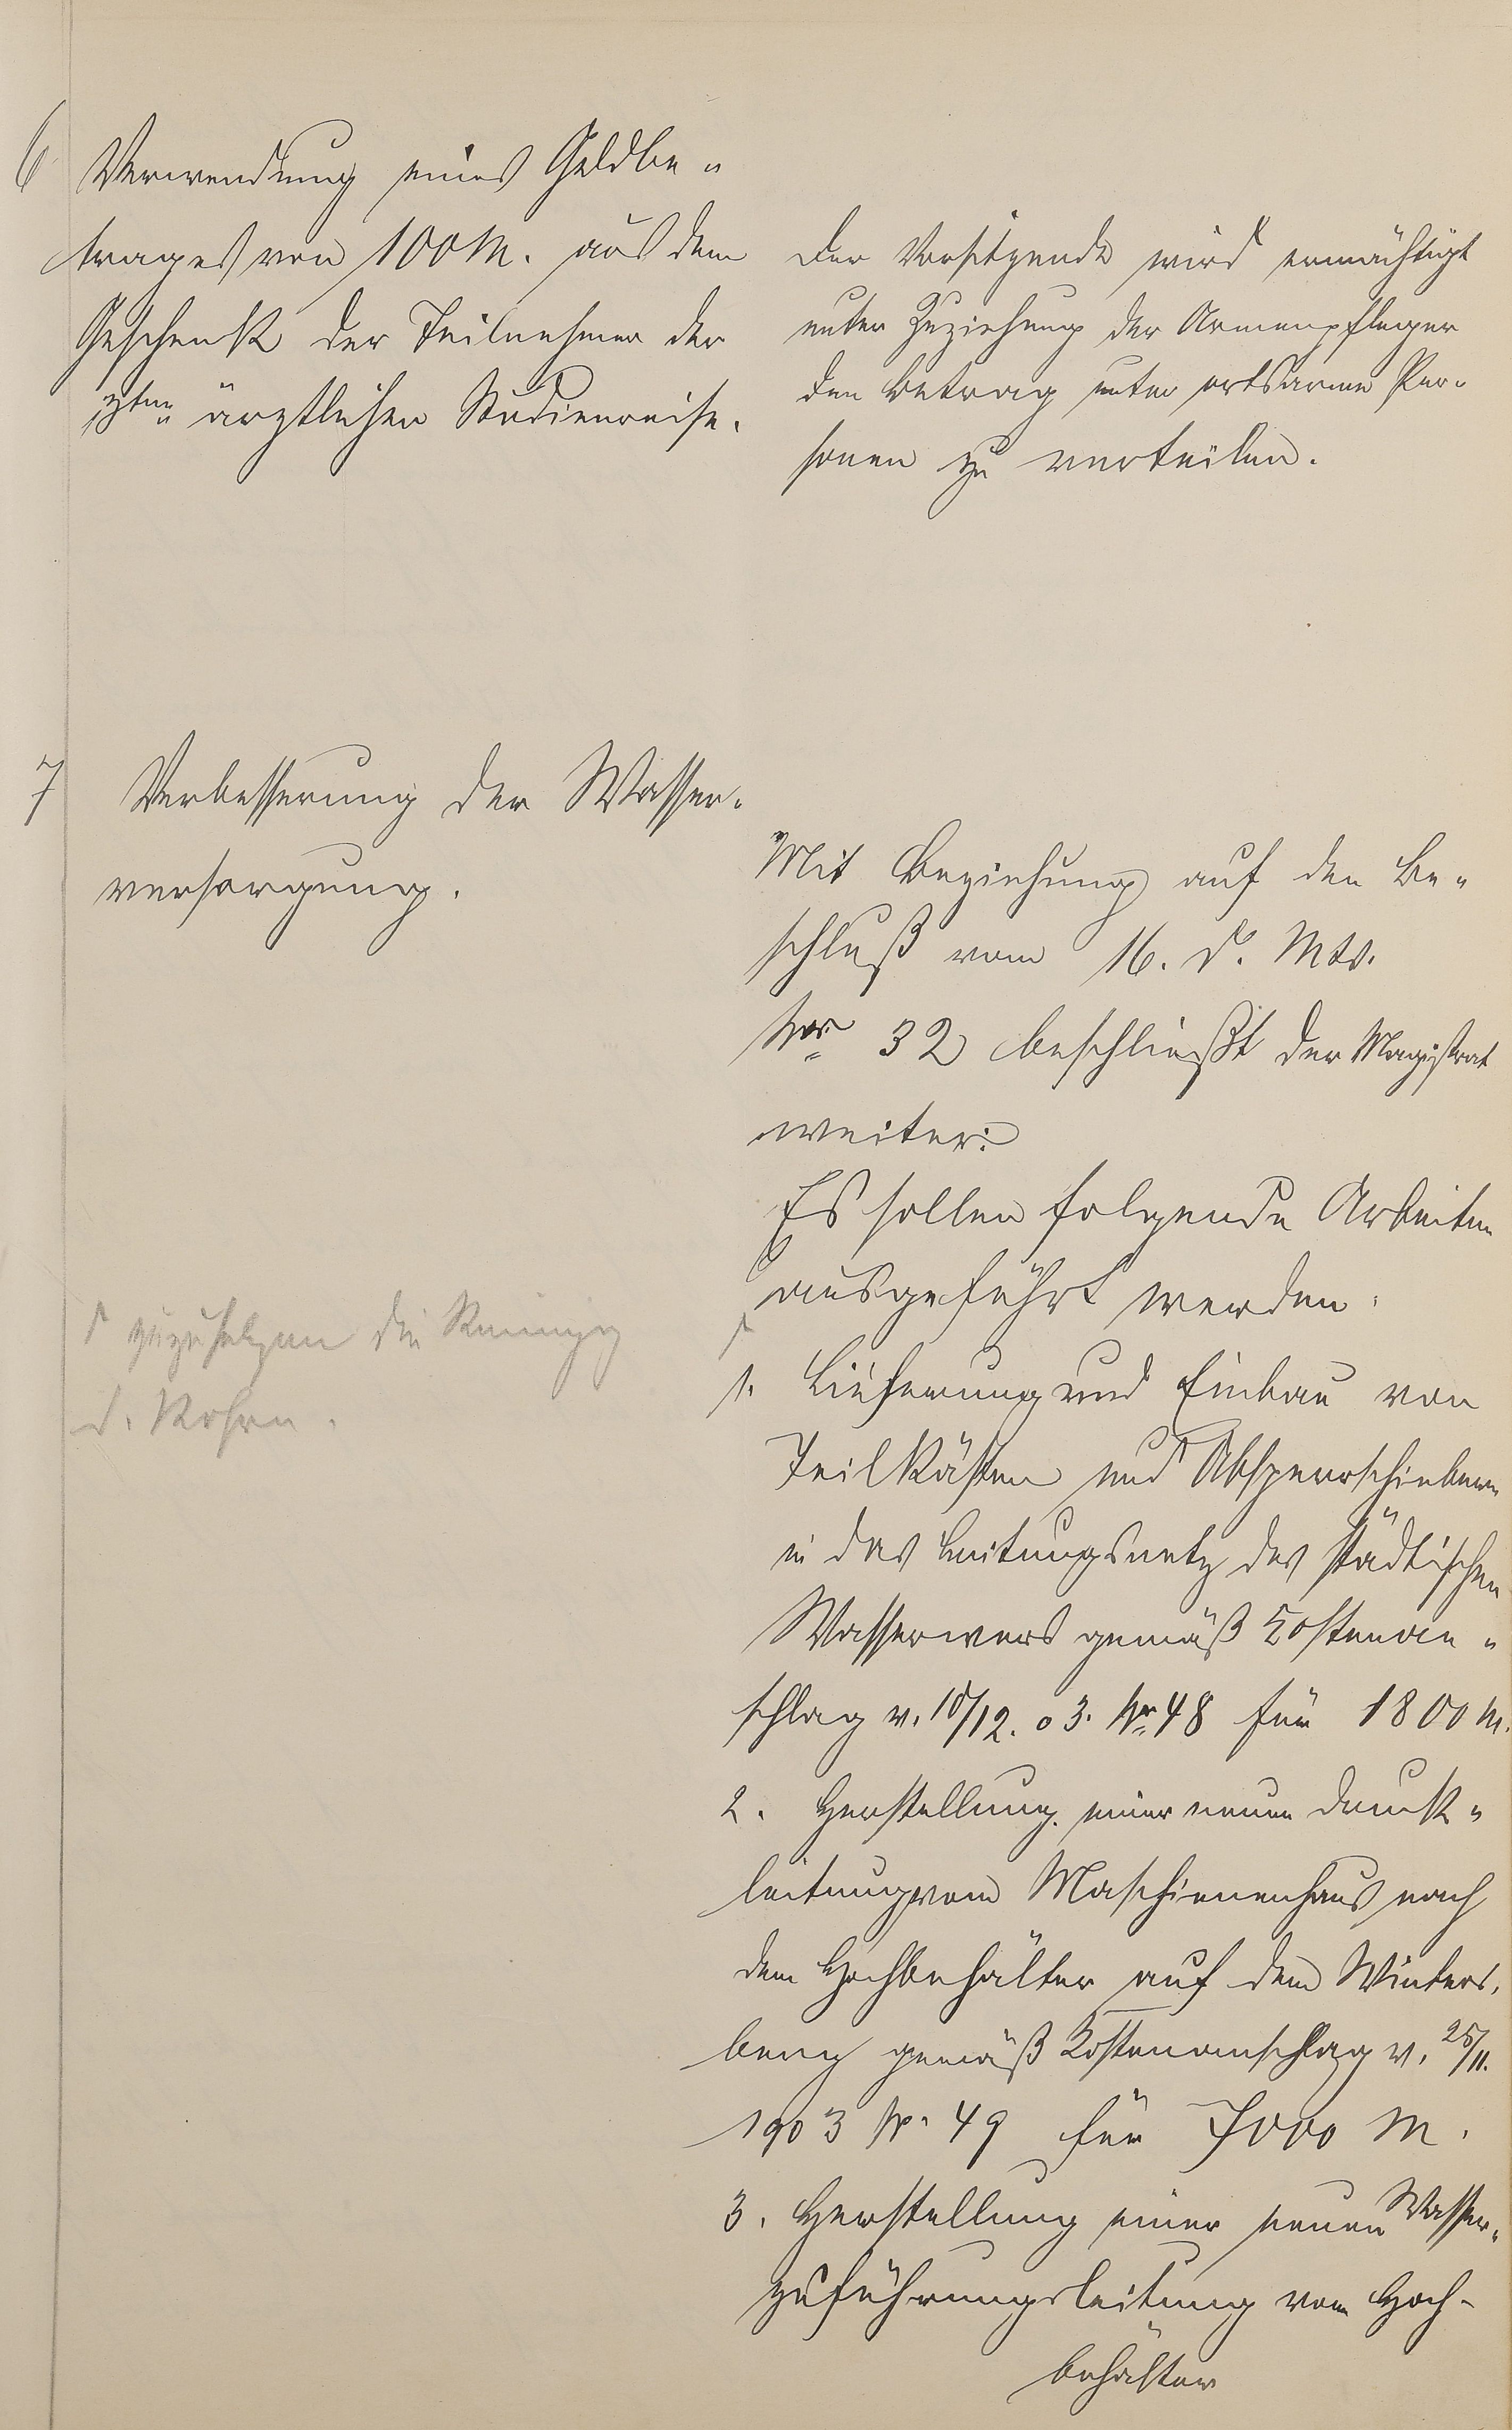 6 Verwendung eines Geldbe„
trages von 100 M. aus dem
Geschenk der Teilnehmer der
ärztlichen Studienreise.
Der Vorsitzende wird ermächtigt
unter Zuziehung der Armenpfleger
den Betrag unter ortsarme Per„
sonen zu verteilen.
7 Verbesserung der Wasser„
versorgung.
Mit Beziehung auf den Be„
schluß vom 16. d. Mts.
Nr 32 beschließt der Magistrat
weiter:
Es sollen folgende Arbeiten
ausgeführt werden:
1. Lieferung und Einbau von
Teilkästen und Absperrschiebern
in das Leitungsnetz des städtischen
Wasserwerks gemäß Kostenan„
schlag v. 10/12. 03. Nr 48 für 1800 M.
2. Herstellung einer neuen Druck„
leitung vom Maschienenhaus nach
dem Hochbehälter auf dem Winters„
berg gemäß Kostenanschlag v. 25/11.
1903 Nr. 49 für 7000 M.
3. Herstellung einer neuen Wasser„
zuführungsleitung vom Hoch-
behälter
die
d. Rohren.